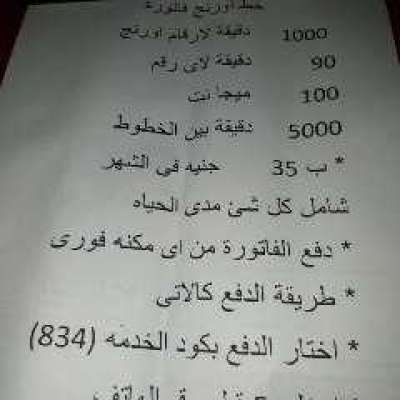 خط اورنج فاتورة
1000 دقيقة لارقام اورنج
90 دقيقة لاى رقم
100 ميجا نت
5000 دقيقة بين الخطوط
* ب 35 جنيه فى الشهر
شامل كل شئ مدى الحياه
* دفع الفاتورة من اى مكنه فورى
* طريقة الدفع كالاتى
* اختار الدفع بكود الخدمه (834)
الهاتف